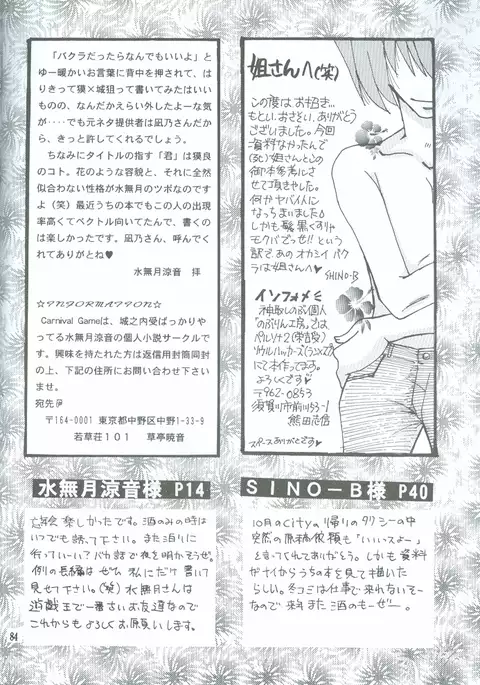 「バクラだったらなんでもいいよ」と
ゆー暖かいお言葉に背中を押されて、は
りきって獏×城狙って書いてみたはいい
ものの、なんだかえらい外したよーな気
が‥‥でも元ネタ提供者は凪乃さんだか
ら、きっと許してくれるでしょう。
ちなみにタイトルの指す「君」は獏良
のコト。花のような容貌と、それに全然
似合わない性格が水無月のツボなのです
よ（笑）最近うちの本でもこの人の出現
率高くてベクトル向いてたんで、書くの
は楽しかったです。凪乃さん、呼んでく
れてありがとね♥
水無月涼音 拝
☆INFORMATION☆
Carnival Gameは、城之内受ばっかりや
ってる水無月涼音の個人小説サークルで
す。興味を持たれた方は返信用封筒同封
の上、下記の住所にお問い合わせ下さい
ませ。
宛先
〒164-0001 東京都中野区中野1-33-9
若草荘101 草亭暁音
姉さんへ(笑)
この度はお招き…
もとい、おさそい、ありがとう
ございました。今回
資料なかったんで
姉さんとこの
御本参考にさ
せて頂きやした。
何かヤバイ人に
なっちまいました♪
しかも髪、黒くすりゃ
モクバでっせ!! という
訳で、あのオカシイバク
ラは姉さんへ♥
SHINO-B
インフォメ
神取しのぶ個人
『のぶりん工房』では
ペルソナ2
ソウルハッカーズ
にて本作ってます。
よろしくです♥
〒962-0853
須賀川市前川53-1
熊田志信
スペースありがとです♥
水無月涼音様 P14
SINO-B様 P40
忘年会楽しかったです。酒のみの時は
いつでも誘って下さい。また泊りに
行っていーい？バカ話で夜を明かそうぜ。
例の長編は ぜひ 私にだけ書いて
見せて下さい。(笑) 水無月さんは
遊戯王で一番古いお友達なので
これからも よろしくお願いします。
10月のCityの帰りのタクシーの中
突然の原稿依頼も「いいっスよー」
と言ってくれてありがとう。しかも資料
がナイからうちの本を見て描いた
らしい。冬コミは仕事で来れないそー
なので 来年また酒のもーぜー。
84